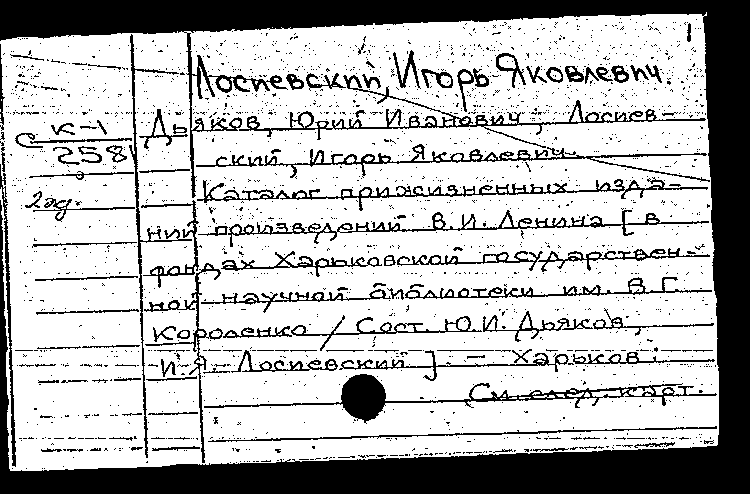 1
Лосиевский, Игорь Яковлевич.
С К-1
258
2 эд.
Дьяков, Юрий Иванович; Лосиев-
ский, Игорь Яковлевич.
Каталог прижизненных изда-
ний произведений В.И. Ленина [в
фондах Харьковской государствен-
ной научной библиотеки им. В.Г.
Короленко / Сост. Ю.И. Дьяков,
И.Я. Лосиевский]. - Харьков:
См. след. карт.